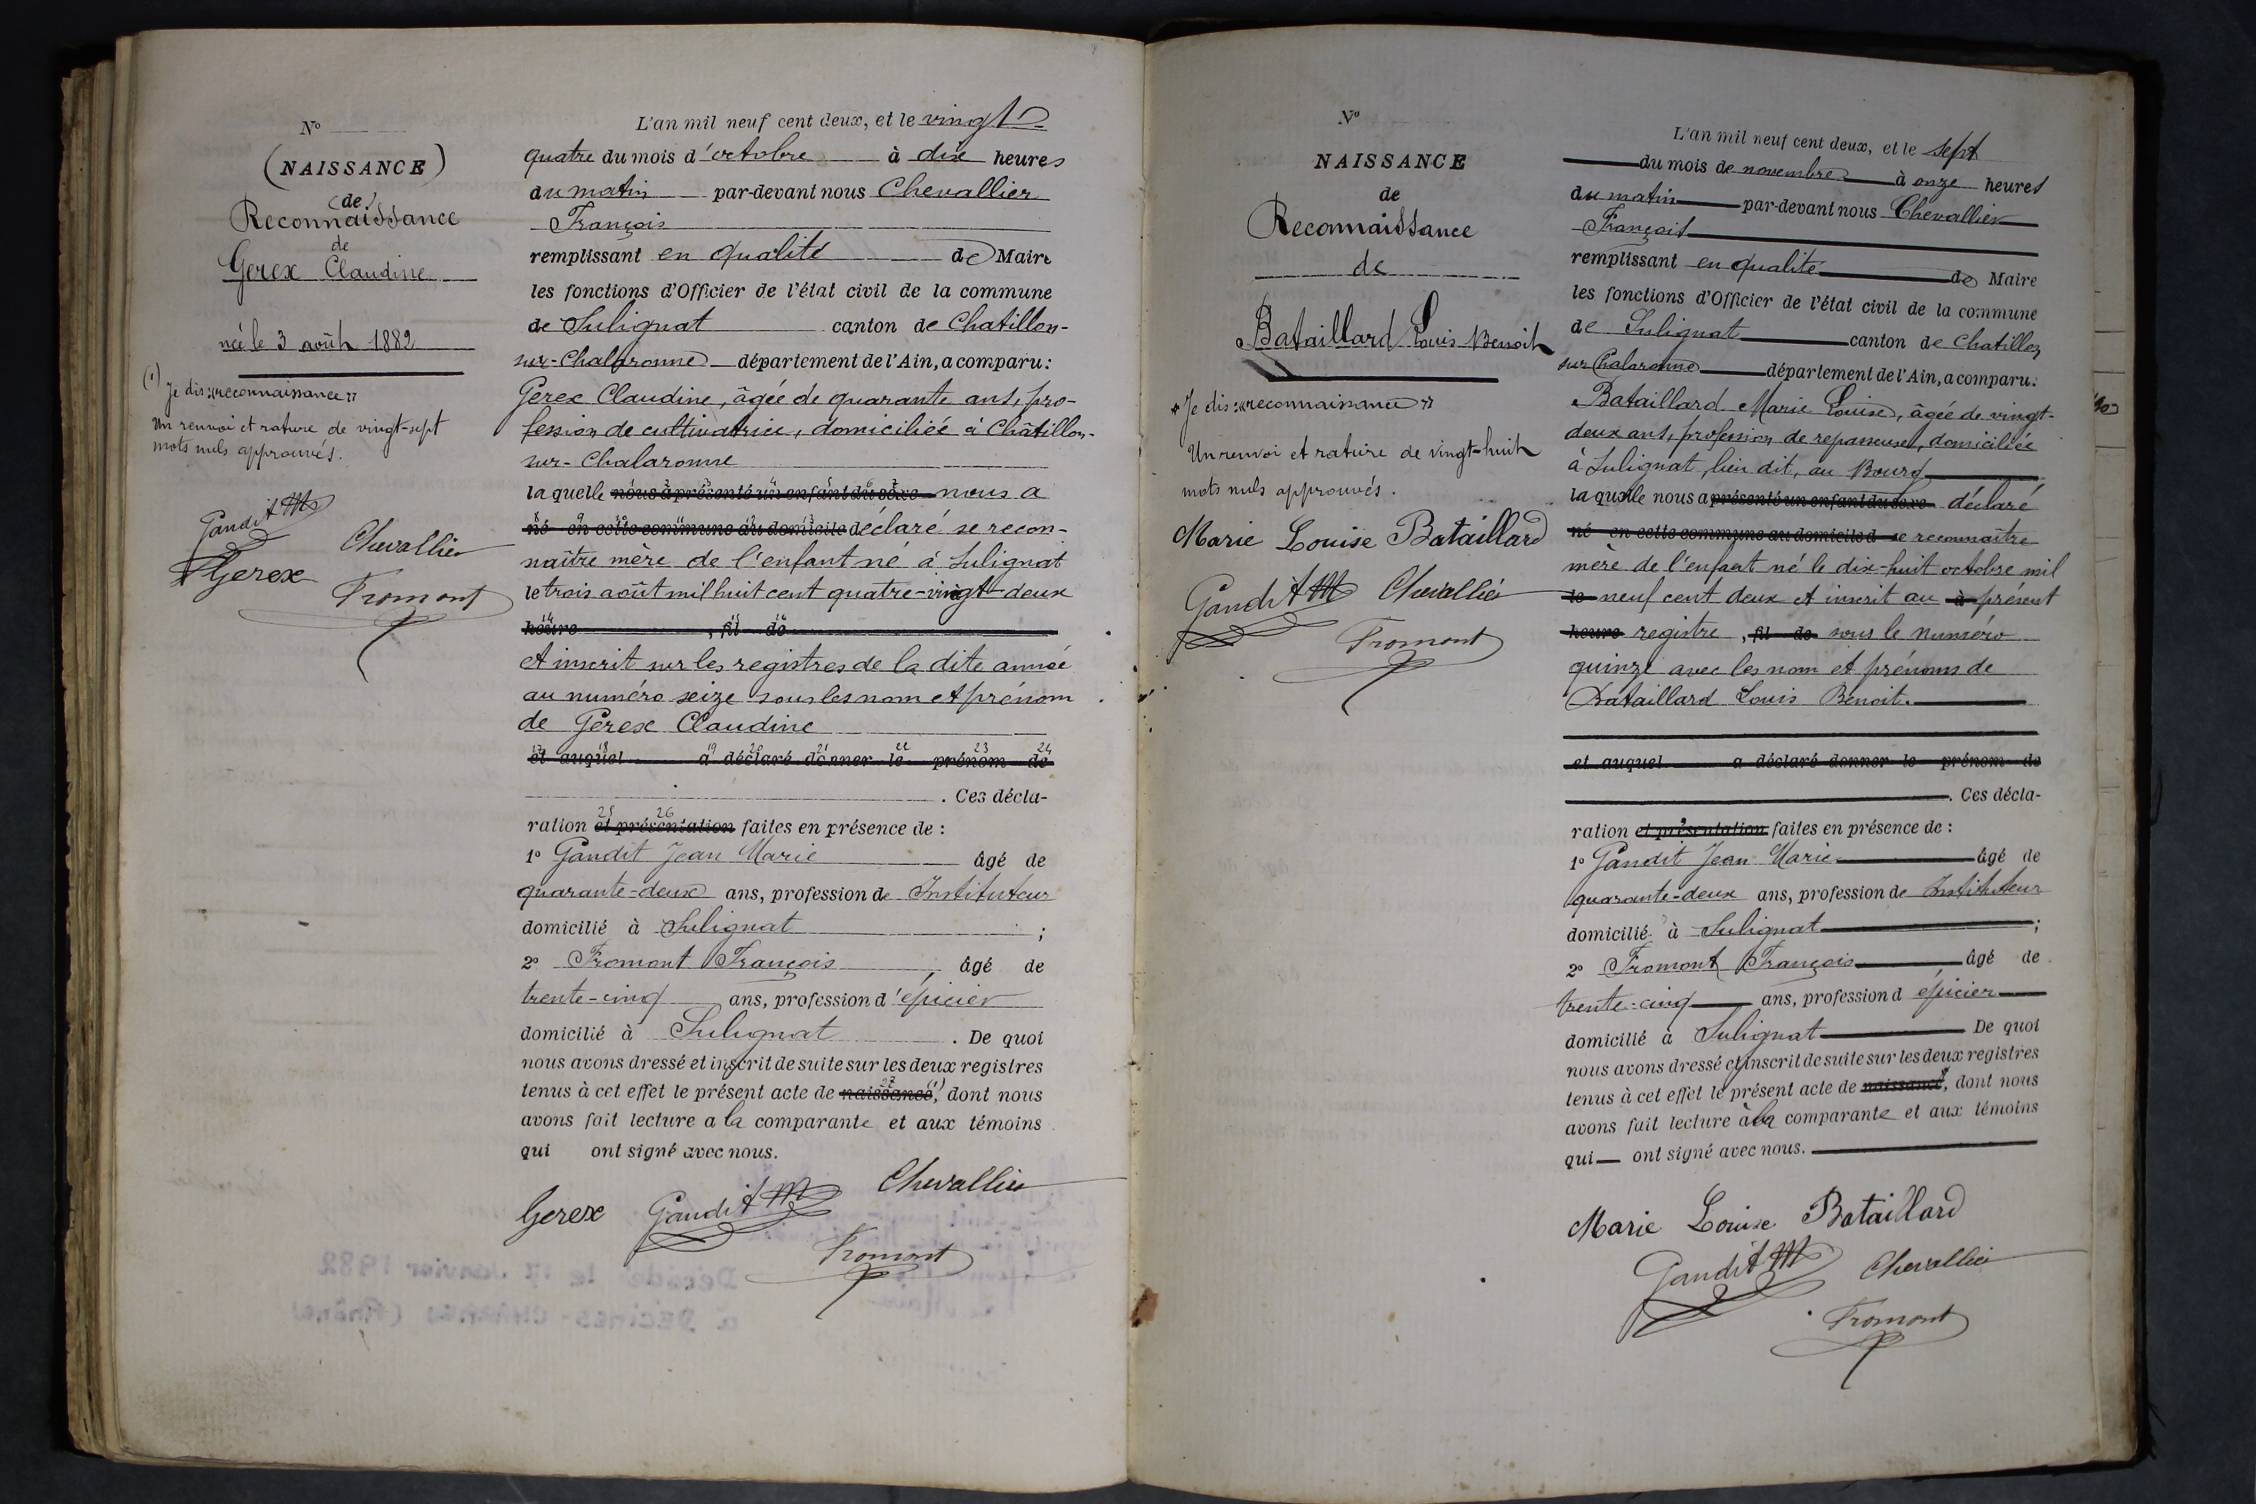 N°
(NAISSANCE)
(de)
Reconnaissance
de
Gerex Claudine
née le 3 août 1882
(1) Je dis: "reconnaissance"
Un renvoi et rature de vingt-sept
mots nuls approuvés.
Gandit JM
Chevallier
Gerex
Fromont
L'an mil neuf cent deux, et le vingt-
quatre du mois d'octobre à dix heures
du matin par-devant nous Chevallier
François
remplissant en qualité de Maire
les fonctions d'Officier de l'état civil de la commune
de Sulignat canton de Chatillon-
sur-Chalaronne département de l'Ain, a comparu:
Gerex Claudine, âgée de quarante ans, pro-
fession de cultivatrice, domiciliée à Châtillon-
sur-Chalaronne
laquelle nous a présenté un enfant du sexe nous a
né en cette commune au domicile déclaré se recon-
naître mère de l'enfant né à Sulignat
le trois août mil huit cent quatre-vingt-deux
heure , fil de
et inscrit sur les registres de la dite année
au numéro seize sous les nom et prénom
de Gerex Claudine
et auquel a déclaré donner le prénom de
. Ces décla-
ration et présentation faites en présence de :
1° Gandit Jean Marie âgé de
quarante-deux ans, profession de Instituteur
domicilié à Sulignat ;
2° Fromont François âgé de
trente-cinq ans, profession d'épicier
domicilié à Sulignat . De quoi
nous avons dressé et inscrit de suite sur les deux registres
tenus à cet effet le présent acte de naissance (1), dont nous
avons fait lecture a la comparante et aux témoins
qui ont signé avec nous.
Gerex Gandit JM Chevallier
Fromont
N°
NAISSANCE
de
Reconnaissance
de
Bataillard Louis Benoit
* Je dis: "reconnaissance"
Un renvoi et rature de vingt-huit
mots nuls approuvés.
Marie Louise Bataillard
Gandit JM Chevallier
Fromont
L'an mil neuf cent deux, et le sept
du mois de novembre à onze heures
du matin par-devant nous Chevallier
François
remplissant en qualité de Maire
les fonctions d'Officier de l'état civil de la commune
de Sulignat canton de Chatillon
sur Chalaronne département de l'Ain, a comparu:
Bataillard Marie Louise, âgée de vingt-
deux ans, profession de repasseuse, domiciliée
à Sulignat, lieu dit, au Bourg
laquelle nous a présenté un enfant du sexe déclaré
né en cette commune au domicile d se reconnaître
mère de l'enfant né le dix-huit octobre mil
le neuf cent deux et inscrit au à présent
heure registre, fil de sous le numéro
quinze avec les nom et prénoms de
Bataillard Louis Benoit.
et auquel a déclaré donner le prénom de
. Ces décla-
ration et présentation faites en présence de :
1° Gandit Jean Marie âgé de
quarante-deux ans, profession de Instituteur
domicilié à Sulignat ;
2° Fromont François âgé de
trente-cinq ans, profession d épicier
domicilié à Sulignat De quoi
nous avons dressé et inscrit de suite sur les deux registres
tenus à cet effet le présent acte de naissance*, dont nous
avons fait lecture à la comparante et aux témoins
qui ont signé avec nous.
Marie Louise Bataillard
Gandit JM Chevallier
Fromont